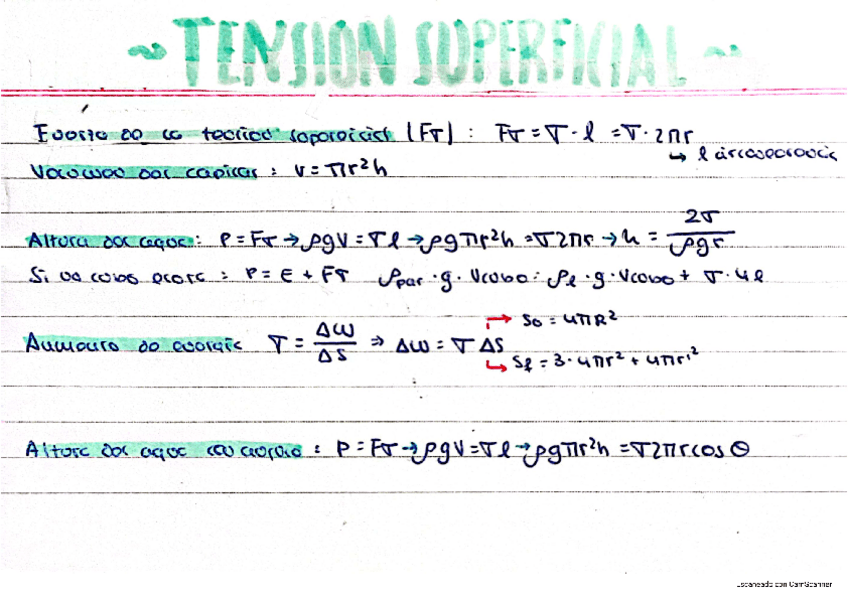 ~ TENSION SUPERFICIAL ~
Fuerza de la tensión superficial (Fσ) : Fσ = σ · l = σ · 2πr
↳ l circunferencia
Volumen del capilar : V = πr²h
Altura del agua : P = Fσ → ρgV = σl → ρgπr²h = σ2πr → h = 2σ / ρgr
Si un cubo flota : P = E + Fσ ρpar · g · Vcubo = ρl · g · Vcubo + σ · 4l
S₀ = 4πR²
Aumento de energía σ = ΔW / ΔS ⇒ ΔW = σ ΔS
Sf = 3 · 4πr² + 4πr'²
Altura del agua con ángulo : P = Fσ → ρgV = σl → ρgπr²h = σ2πrcos θ
Escaneado con CamScanner